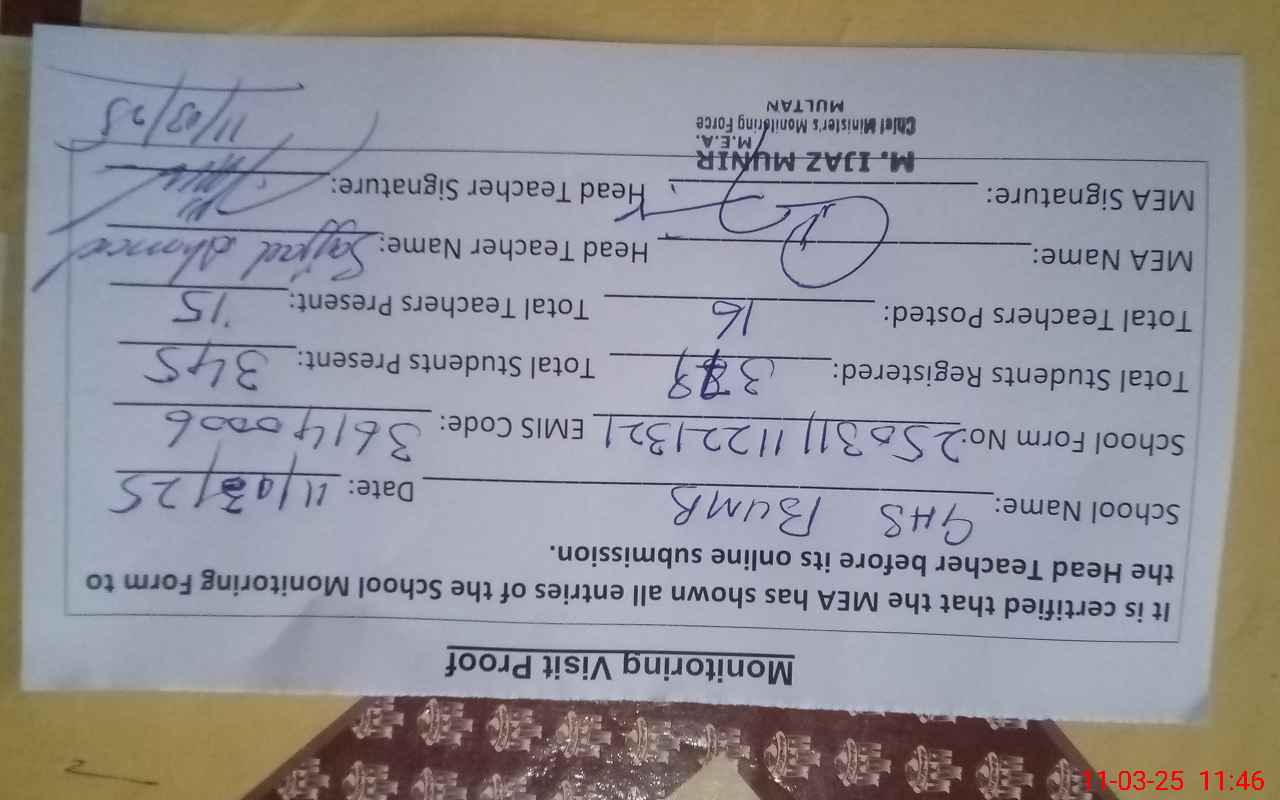 Monitoring Visit Proof
It is certified that the MEA has shown all entries of the School Monitoring Form to
the Head Teacher before its online submission.
School Name: GHS BUMB Date: 11/03/25
School Form No: 25031111221321 EMIS Code: 36140006
Total Students Registered: Total Students Present: 345
Total Teachers Posted: 16 Total Teachers Present: 15
MEA Name: Head Teacher Name: Sajjad Ahmad
MEA Signature: Head Teacher Signature:
M. IJAZ MUNIR
M.E.A.
Chief Minister's Monitoring Force
MULTAN
11/03/25
11-03-25 11:46